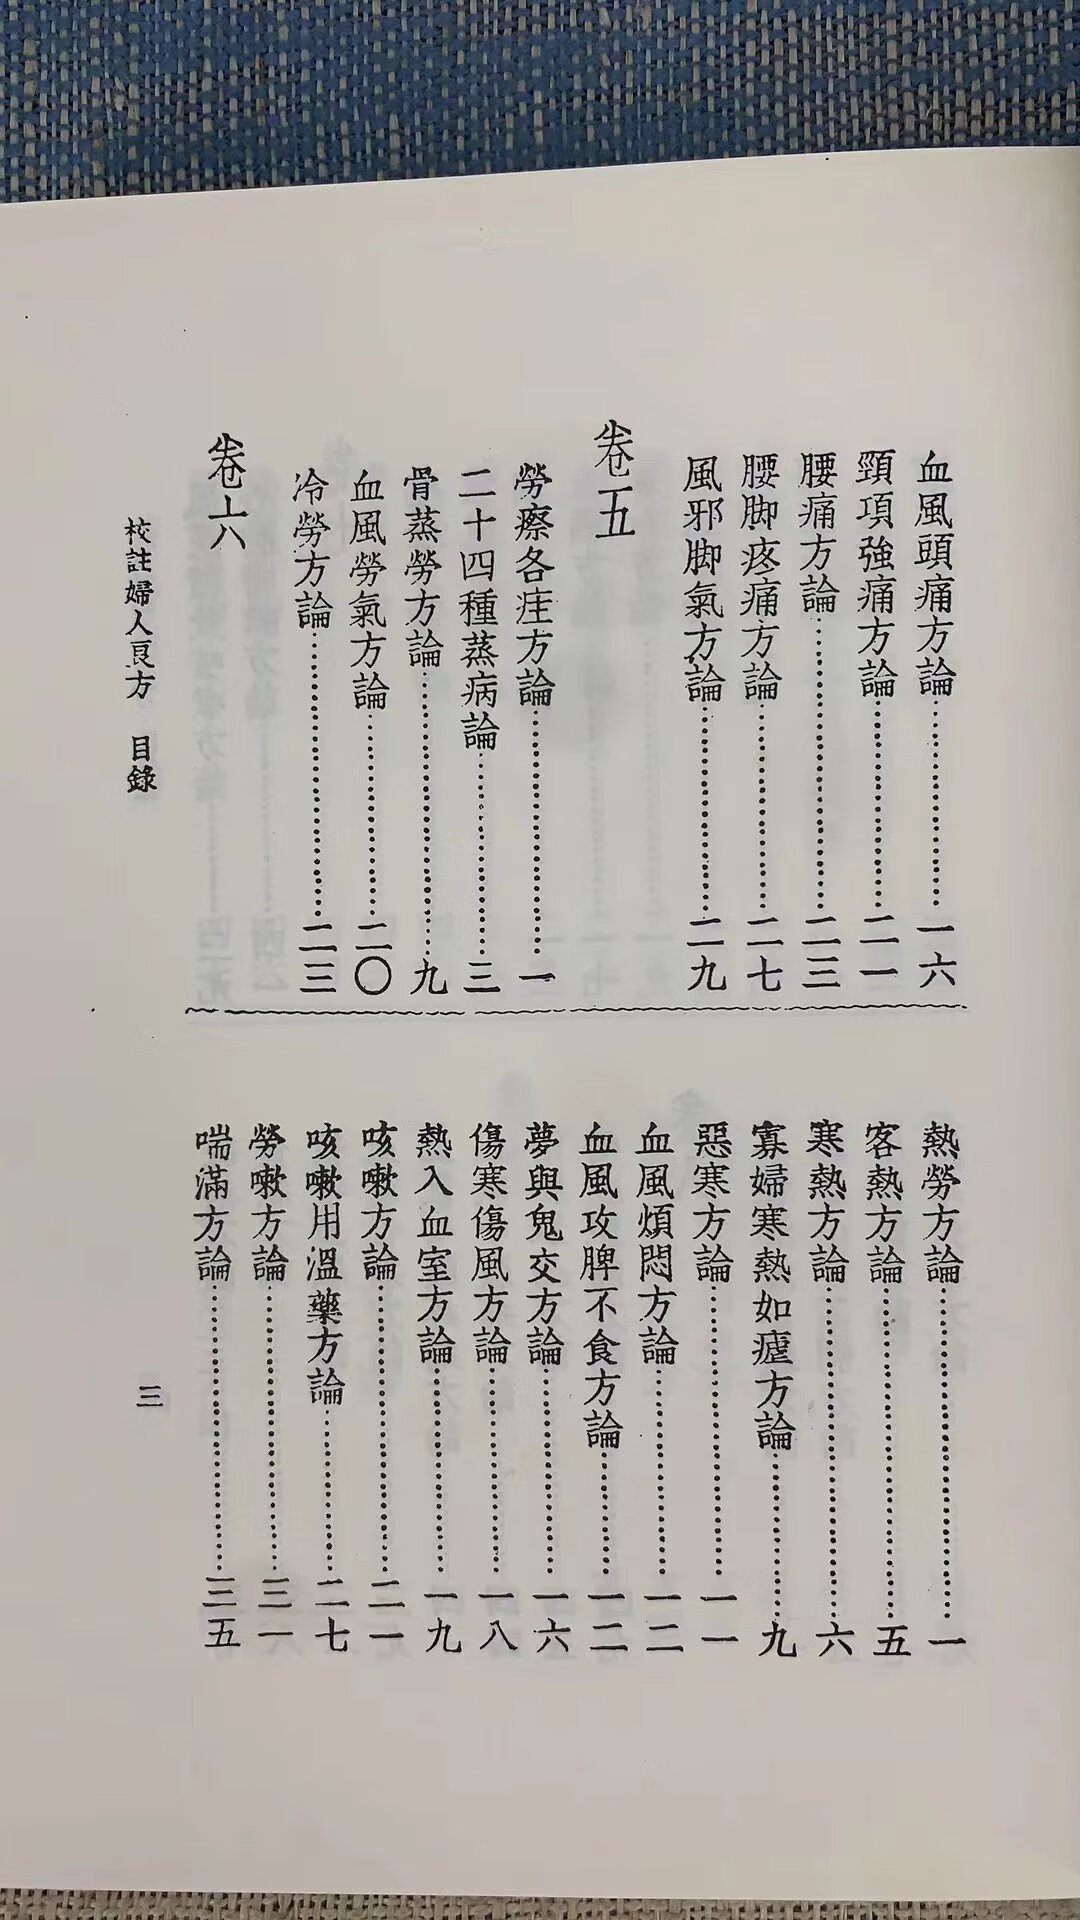 血風頭痛方論……一六
頸項強痛方論……二一
腰痛方論……二三
腰脚疼痛方論……二七
風邪脚氣方論……二九
卷五
勞瘵各疰方論……一
二十四種蒸病論……三
骨蒸勞方論……九
血風勞氣方論……二〇
冷勞方論……二三
卷六
熱勞方論……一
客熱方論……五
寒熱方論……六
寡婦寒熱如瘧方論……九
惡寒方論……一一
血風煩悶方論……一二
血風攻脾不食方論……一二
夢與鬼交方論……一六
傷寒傷風方論……一八
熱入血室方論……一九
咳嗽方論……二一
咳嗽用溫藥方論……二七
勞嗽方論……三一
喘滿方論……三五
校註婦人良方 目錄
三